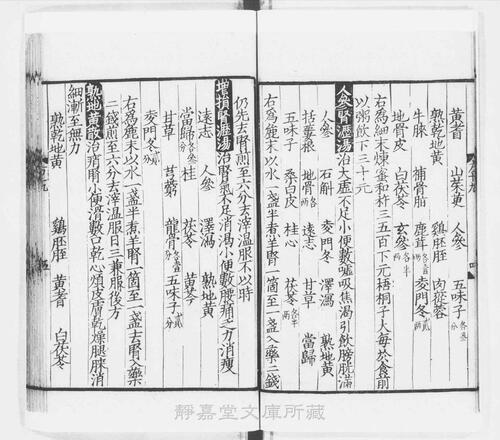 黃耆 山茱萸 人參 五味子各三分
熟乾地黃 雞胵胵 肉蓯蓉
牛膝 補骨脂 鹿茸各三分 麥門冬一兩
地骨皮 白茯苓 玄參各半兩
右為細末煉蜜和杵三五百下元梧桐子大每於食前
以粥飲下三十元
人參腎瀝湯治大虛不足小便數噓吸焦渴引飲膀胱滿
人參 石斛 麥門冬 澤瀉 熟地黃
括蔞根 地骨 遠志 甘草 當歸
五味子 桑白皮 桂心 茯苓
右為麄末以水一盞半煮羊腎一箇至一盞入藥二錢
仍先去腎煎至六分去滓溫服不以時
增損腎瀝湯治腎氣不足消渴小便數腰痛乏力消瘦
遠志 人參 澤瀉 熟地黃
當歸 桂 茯苓 黃芩
甘草 芎藭 龍骨 五味子
麥門冬
右為麄末以水一盞半煮羊腎一箇至一盞去腎入藥
二錢煎至六分去滓溫服日三兼服後方
熟地黃散治痟腎小便滑數口乾心煩皮膚乾燥腿膝消
細漸至無力
熟乾地黃 雞胵胵 黃耆 白茯苓
靜嘉堂文庫所藏